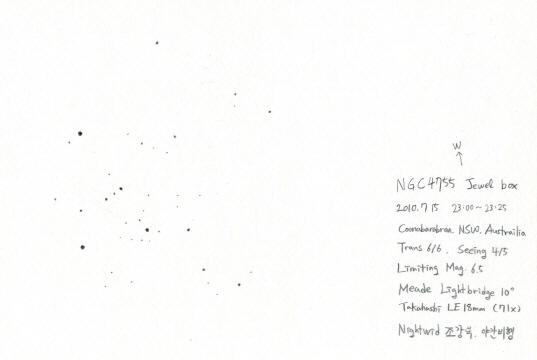 W
NGC4755 Jewel box
2010. 7 15 23:00 ~ 23:25
Coonabarabran NSW. Austrailia
Trans 6/6 . Seeing 4/5
Limiting Mag. 6.5
Meade Lightbridge 10"
Takahashi LE 18mm (71x)
Nightwid 조강욱. 야간비행